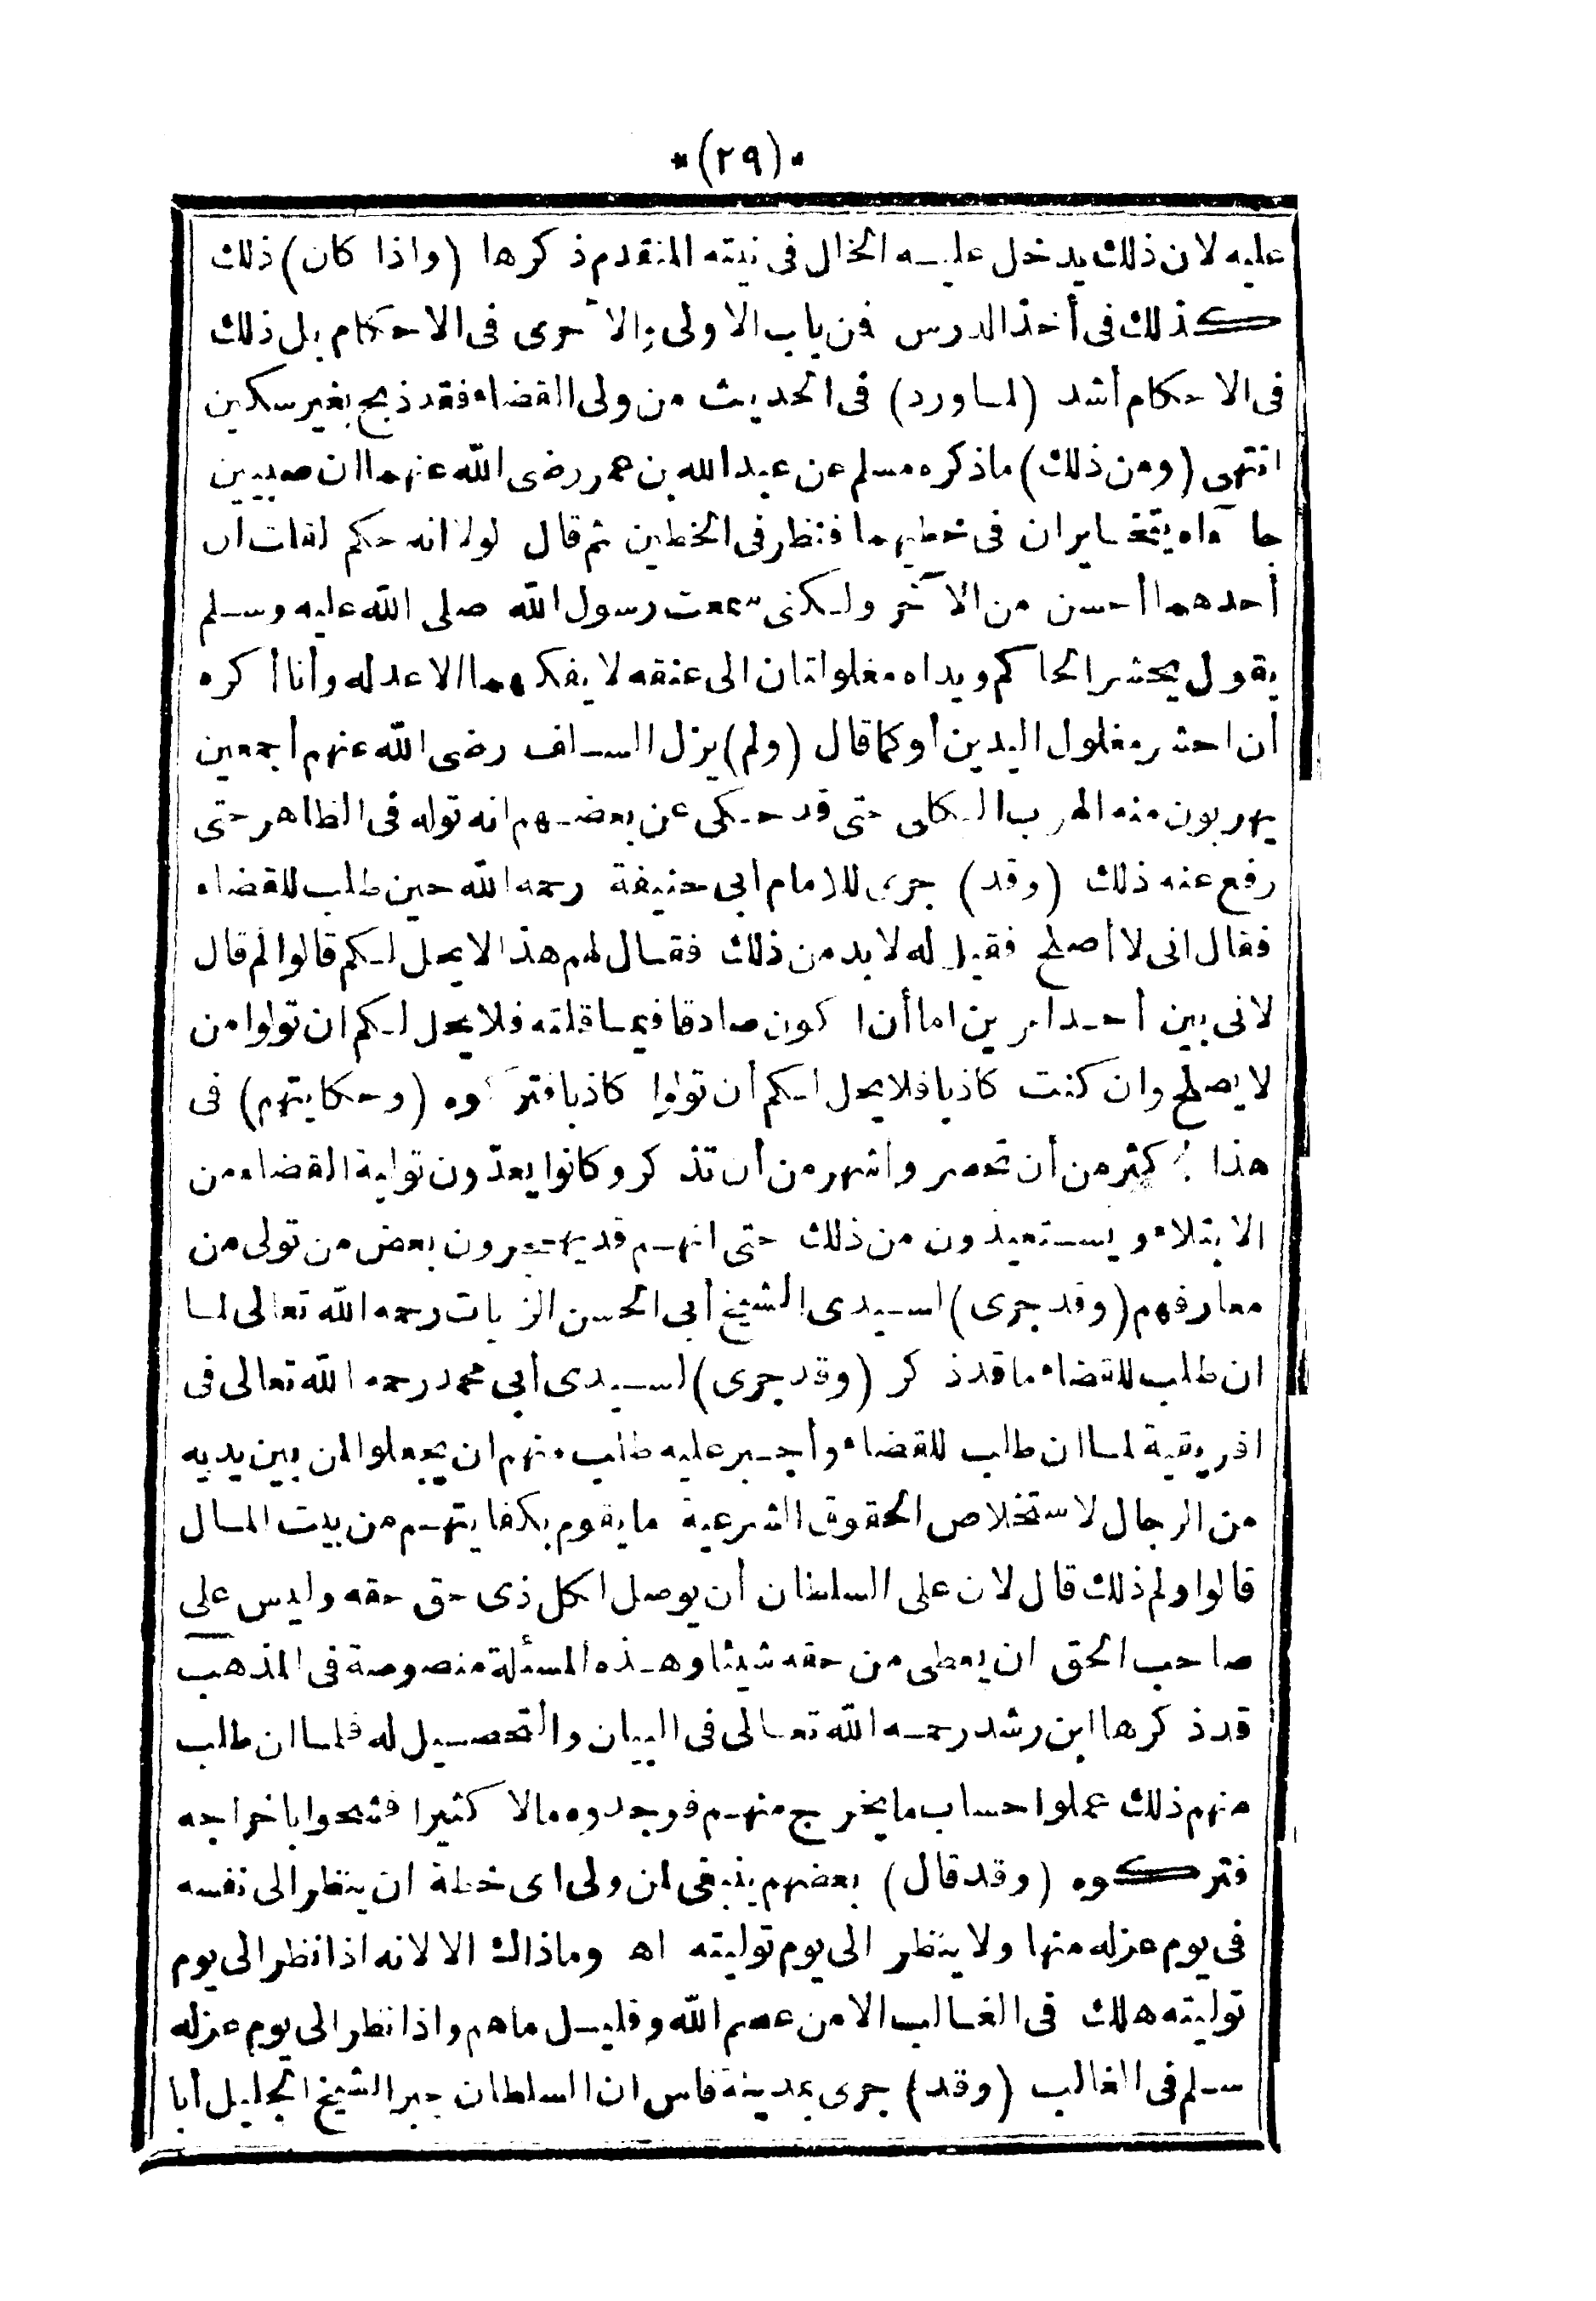 *(٢٩)*
عليه لان ذلك يدخل عليه الخال فى نيته المتقدم ذكرها (واذا كان) ذلك
كذلك فى أخذ الدرس فن باب الاولى والاحرى فى الاحكام بل ذلك
فى الاحكام أشد (لما ورد) فى الحديث من ولى القضاء فقد ذبح بغير سكين
انتهى (ومن ذلك) ما ذكره مسلم عن عبد الله بن عمر رضى الله عنهما ان صبيين
جا آه يتخايران فى خطيهما فنظر فى الخطين ثم قال لولا انه حكم لقلت ان
أحدهما أحسن من الآخر ولكنى سمعت رسول الله صلى الله عليه وسلم
يقول يحشر الحاكم ويداه مغلولتان الى عنقه لا يفكهما الا عدله وأنا أكره
أن احشر مغلول اليدين أو كما قال (ولم) يزل السلف رضى الله عنهم أجمعين
يهربون منه الهرب الكلى حتى قد حكى عن بعضهم انه توله فى الظاهر حتى
رفع عنه ذلك (وقد) جرى للامام ابى حنيفة رحمه الله حين طلب للقضاء
فقال انى لا أصلح فقيل له لا بد من ذلك فقال لهم هذا لا يحل لكم قالوا لم قال
لانى بين أحد امرين اما أن اكون صادقا فيما قلته فلا يحل لكم ان تولوا من
لا يصلح وان كنت كاذبا فلا يحل لكم أن تولوا كاذبا فتركوه (وحكايتهم) فى
هذا اكثر من أن تحصر واشهر من أن تذكر وكانوا يعدّون تولية القضاء من
الابتلاء ويستعيذون من ذلك حتى انهم قد يهجرون بعض من تولى من
معارفهم (وقد جرى) لسيدى الشيخ أبى الحسن الزيات رحمه الله تعالى لما
ان طلب للقضاء ما قد ذكر (وقد جرى) لسيدى أبى محمد رحمه الله تعالى فى
افريقية لما ان طلب للقضاء وأجبر عليه طلب منهم ان يجعلوا لمن بين يديه
من الرجال لاستخلاص الحقوق الشرعية ما يقوم بكفايتهم من بيت المال
قالوا ولم ذلك قال لان على السلطان أن يوصل لكل ذى حق حقه وليس على
صاحب الحق ان يعطى من حقه شيئا وهذه المسئلة منصوصة فى المذهب
قد ذكرها ابن رشد رحمه الله تعالى فى البيان والتحصيل له فلما ان طلب
منهم ذلك عملوا حساب ما يخرج منهم فوجدوه مالا كثيرا فشحوا باخراجه
فتركوه (وقد قال) بعضهم ينبغى لمن ولى اى خطة ان ينظر الى نفسه
فى يوم عزله منها ولا ينظر الى يوم توليته اه وما ذاك الا لانه اذا نظر الى يوم
توليته هلك فى الغالب الا من عصم الله وقليل ما هم واذا نظر الى يوم عزله
سلم فى الغالب (وقد) جرى بمدينة فاس ان السلطان جبر الشيخ الجليل أبا